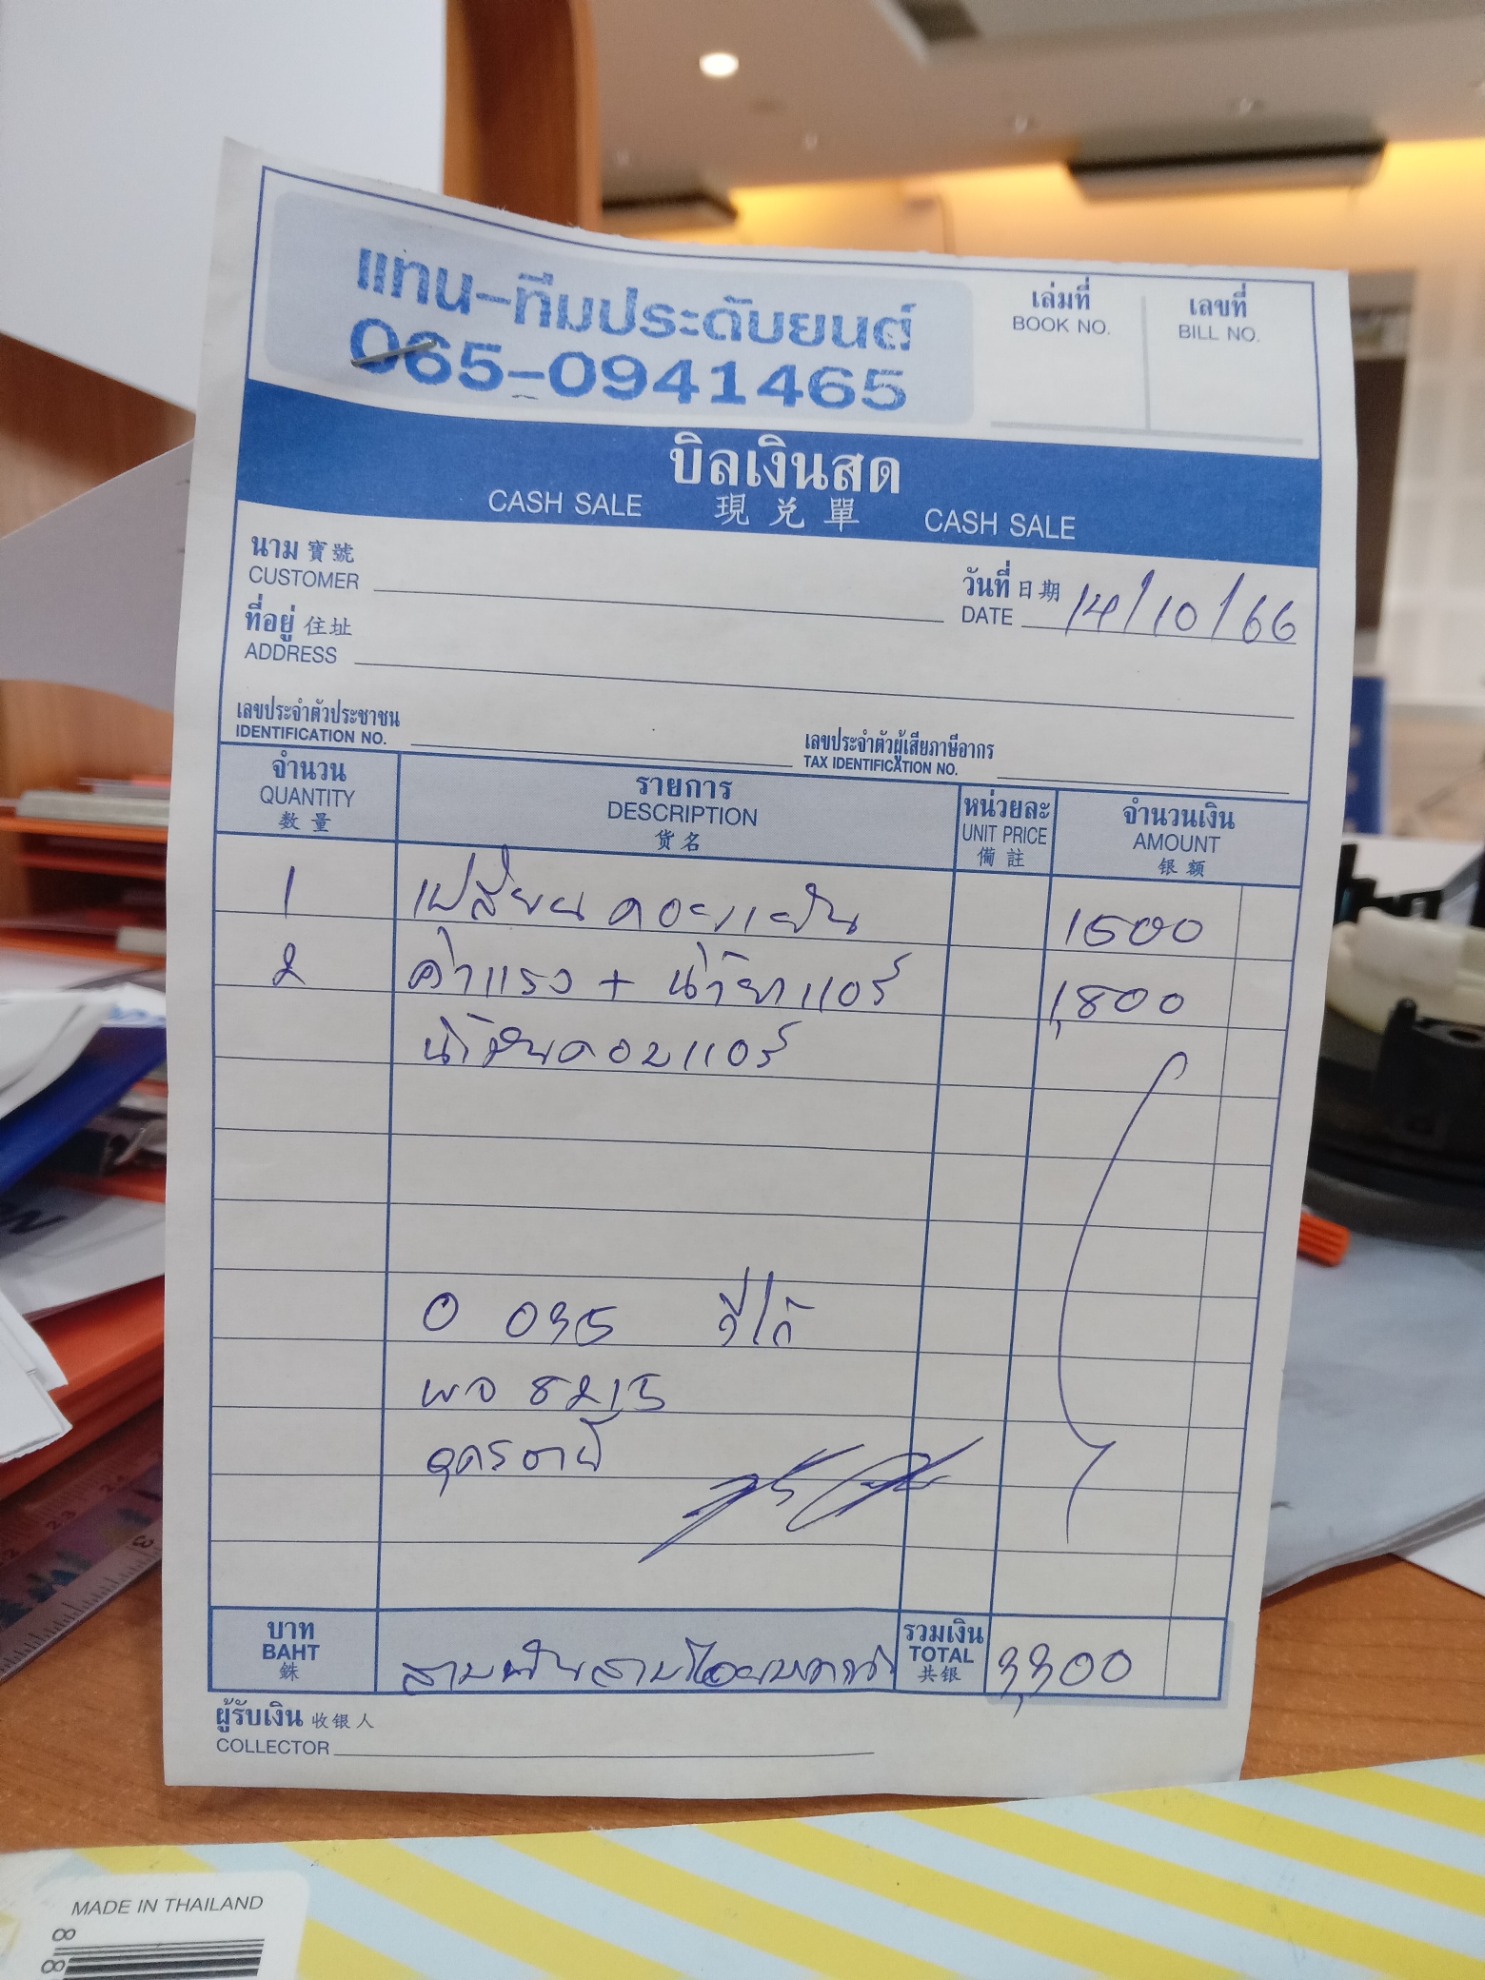 แทน-ทีมประดับยนต์
065-0941465
เล่มที่
BOOK NO.
เลขที่
BILL NO.
บิลเงินสด
CASH SALE 現兑單 CASH SALE
นาม 寳號
CUSTOMER
วันที่ 日期
DATE 14/10/66
ที่อยู่ 住址
ADDRESS
เลขประจำตัวประชาชน
IDENTIFICATION NO.
เลขประจำตัวผู้เสียภาษีอากร
TAX IDENTIFICATION NO.
จำนวน
QUANTITY
数量
รายการ
DESCRIPTION
貨名
หน่วยละ
UNIT PRICE
備註
จำนวนเงิน
AMOUNT
银额
1 เปลี่ยนคอยเย็น 1500
2 ค่าแรง + น้ำยาแอร์ 1,800
น้ำมันคอมแอร์
0 035 วีโก้
8215
อุดรธานี
บาท
BAHT
銖
สามพันสามร้อยบาท
รวมเงิน
TOTAL
共银
3,300
ผู้รับเงิน 收银人
COLLECTOR
MADE IN THAILAND
8
8